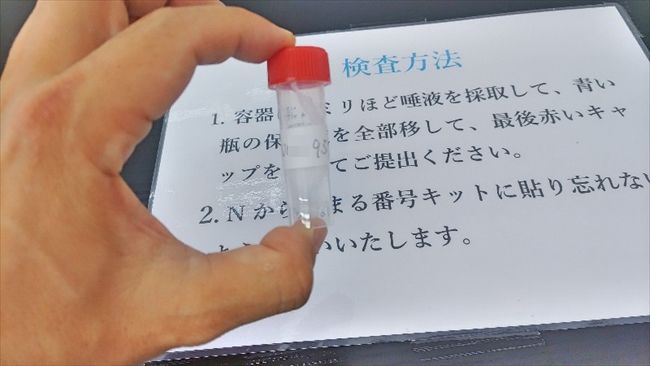 検査方法
1. 容器 ミリほど唾液を採取して、青い
瓶の保 を全部移して、最後赤いキャ
ップを てご提出ください。
2. Nから まる番号キットに貼り忘れない
いいたします。